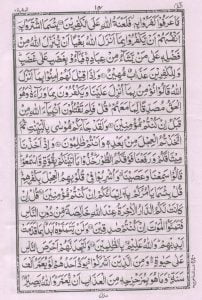 البقرة ٢
١٤
مَّا عَرَفُوْا كَفَرُوْا بِهٖ فَلَعْنَةُ اللّٰهِ عَلَى الْكٰفِرِيْنَ بِئْسَمَا اشْتَرَوْا بِهٖٓ
اَنْفُسَهُمْ اَنْ يَّكْفُرُوْا بِمَآ اَنْزَلَ اللّٰهُ بَغْيًا اَنْ يُّنَزِّلَ اللّٰهُ مِنْ
فَضْلِهٖ عَلٰى مَنْ يَّشَآءُ مِنْ عِبَادِهٖ فَبَآءُوْ بِغَضَبٍ عَلٰى غَضَبٍ
وَلِلْكٰفِرِيْنَ عَذَابٌ مُّهِيْنٌ وَاِذَا قِيْلَ لَهُمْ اٰمِنُوْا بِمَآ اَنْزَلَ اللّٰهُ
قَالُوْا نُؤْمِنُ بِمَآ اُنْزِلَ عَلَيْنَا وَيَكْفُرُوْنَ بِمَا وَرَآءَهٗ وَهُوَ
الْحَقُّ مُصَدِّقًا لِّمَا مَعَهُمْ قُلْ فَلِمَ تَقْتُلُوْنَ اَنْۢبِيَآءَ اللّٰهِ مِنْ
قَبْلُ اِنْ كُنْتُمْ مُّؤْمِنِيْنَ وَلَقَدْ جَآءَكُمْ مُّوْسٰى بِالْبَيِّنٰتِ ثُمَّ
اتَّخَذْتُمُ الْعِجْلَ مِنْۢ بَعْدِهٖ وَاَنْتُمْ ظٰلِمُوْنَ وَاِذْ اَخَذْنَا
مِيْثَاقَكُمْ وَرَفَعْنَا فَوْقَكُمُ الطُّوْرَ خُذُوْا مَآ اٰتَيْنٰكُمْ بِقُوَّةٍ وَّاسْمَعُوْا
قَالُوْا سَمِعْنَا وَعَصَيْنَا وَاُشْرِبُوْا فِيْ قُلُوْبِهِمُ الْعِجْلَ بِكُفْرِهِمْ
قُلْ بِئْسَمَا يَاْمُرُكُمْ بِهٖٓ اِيْمَانُكُمْ اِنْ كُنْتُمْ مُّؤْمِنِيْنَ قُلْ اِنْ
كَانَتْ لَكُمُ الدَّارُ الْاٰخِرَةُ عِنْدَ اللّٰهِ خَالِصَةً مِّنْ دُوْنِ النَّاسِ
فَتَمَنَّوُا الْمَوْتَ اِنْ كُنْتُمْ صٰدِقِيْنَ وَلَنْ يَّتَمَنَّوْهُ اَبَدًۢا بِمَا قَدَّمَتْ
اَيْدِيْهِمْ وَاللّٰهُ عَلِيْمٌۢ بِالظّٰلِمِيْنَ وَلَتَجِدَنَّهُمْ اَحْرَصَ النَّاسِ
عَلٰى حَيٰوةٍ وَمِنَ الَّذِيْنَ اَشْرَكُوْا يَوَدُّ اَحَدُهُمْ لَوْ يُعَمَّرُ اَلْفَ
سَنَةٍ وَمَا هُوَ بِمُزَحْزِحِهٖ مِنَ الْعَذَابِ اَنْ يُّعَمَّرَ وَاللّٰهُ بَصِيْرٌۢ